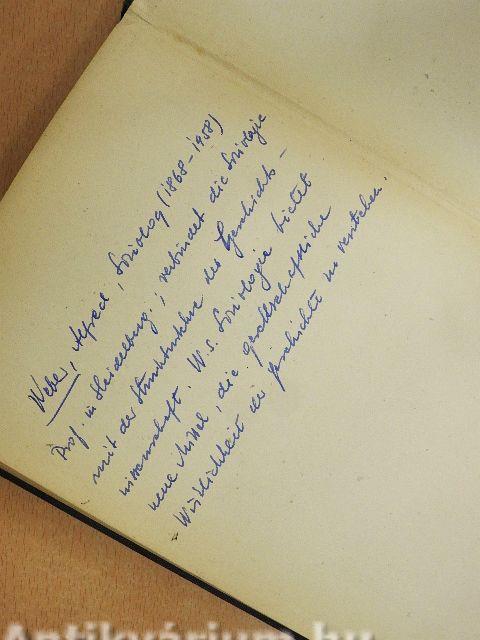 Weber, Alfred, Soziolog (1868–1958)
Prof. in Heidelberg; verbindet die Soziologie
mit der Strukturlehre der Geschichts-
wissenschaft. W.s. Soziologie bietet
neue Mittel, die gesellschaftliche
Wirklichkeit der Geschichte zu verstehen.
Antikvárium.hu